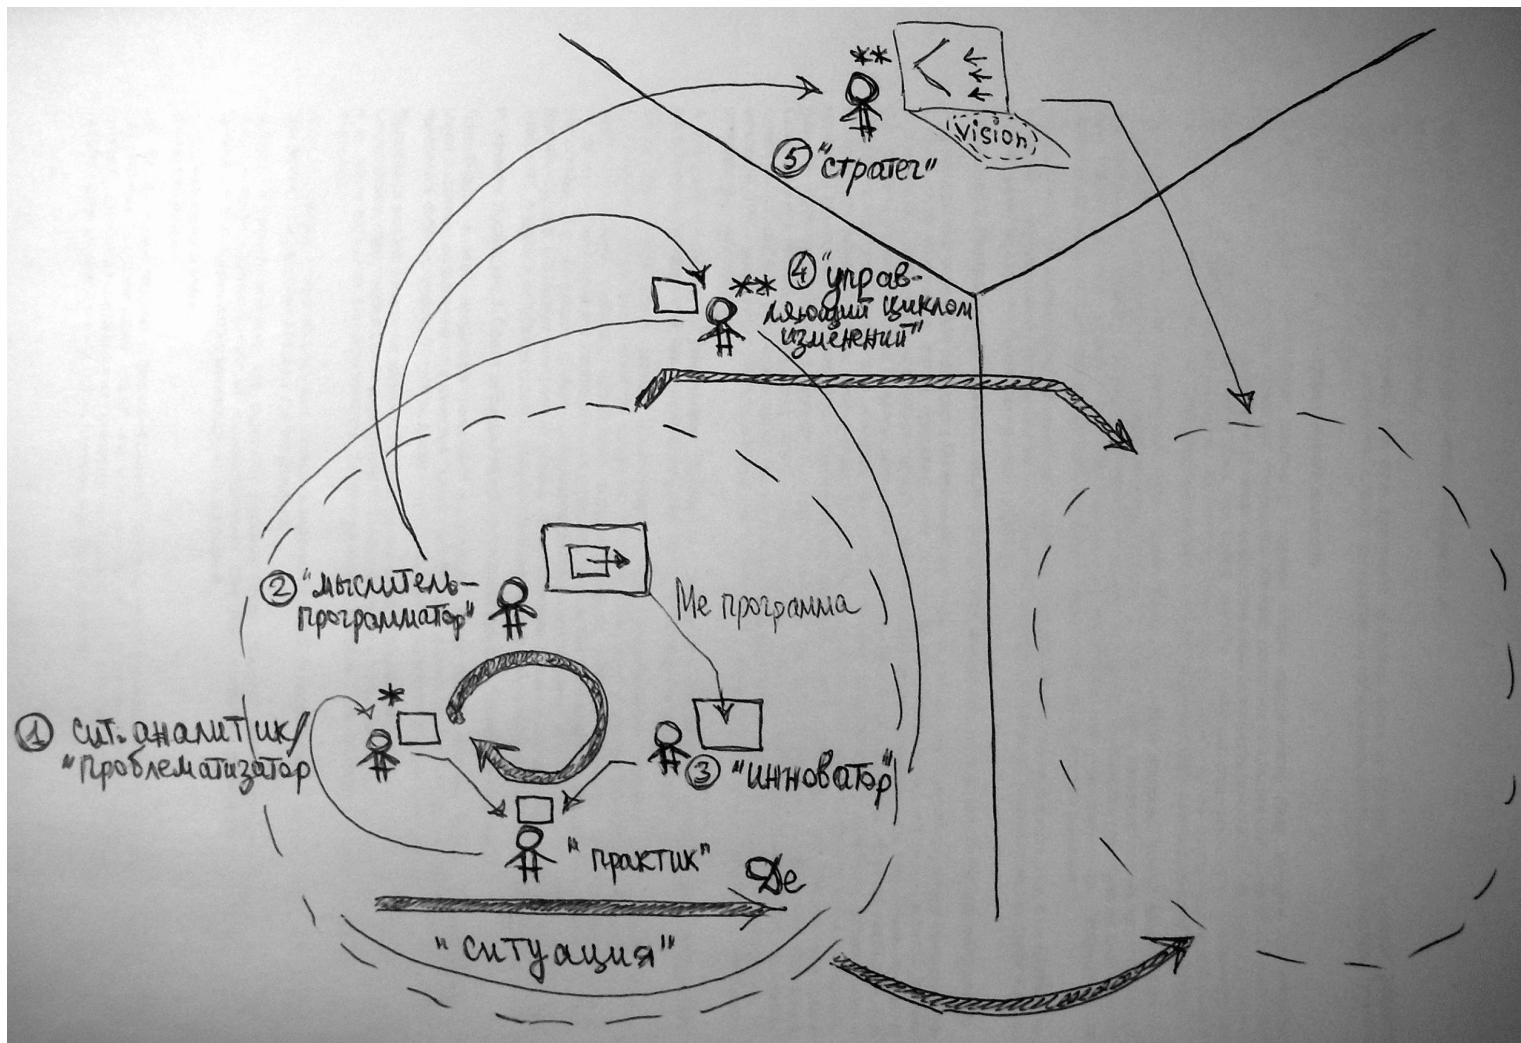 **
Vision
⑤ "стратег"
** ④ "управ-
ляющий циклом
изменений"
② "мыслитель-
программатор"
Ме программа
*
① сит. аналитик/
"проблематизатор
③ "инноватор"
"практик"
Де
"ситуация"